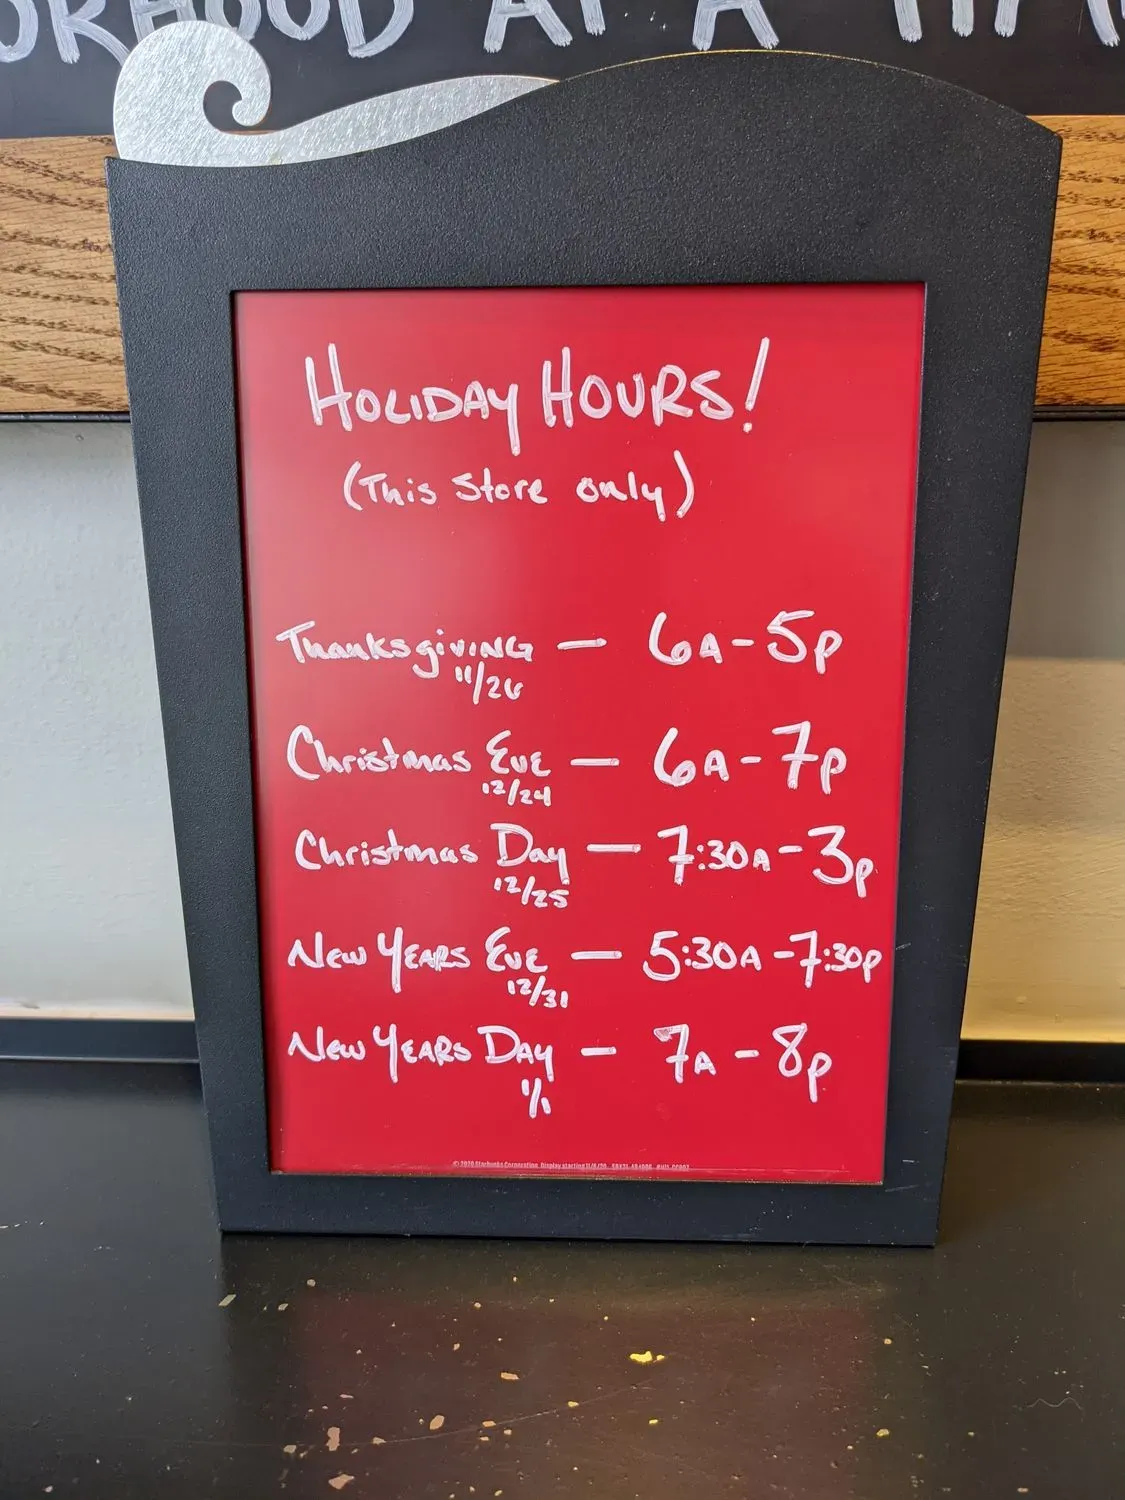 HOOD AT A
HOLIDAY HOURS!
(This Store only)
Thanksgiving — 6A-5p
11/26
Christmas Eve — 6A-7p
12/24
Christmas Day — 7:30A-3p
12/25
New Years Eve — 5:30A-7:30p
12/31
New Years Day — 7A-8p
1/1
© 2020 Starbucks Corporation. Display starting 11/6/20.